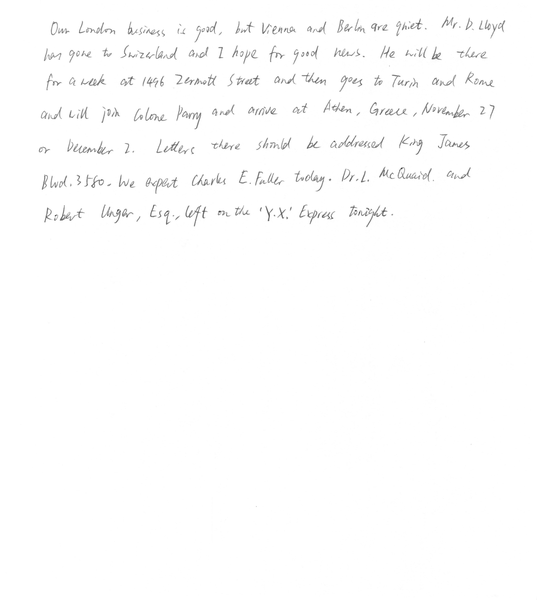 Our London business is good, but Vienna and Berlin are quiet. Mr. D. Lloyd
has gone to Swizerland and I hope for good news. He will be there
for a week at 1496 Zermott Street and then goes to Turin and Rome
and will join Colone Parry and arrive at Athen, Greece, November 27
or December 2. Letters there should be addressed King James
Blvd. 3580. We expect Charles E. Fuller today. Dr. L. McQuaid. and
Robert Unger, Esq., left on the 'Y.X.' Express tonight.